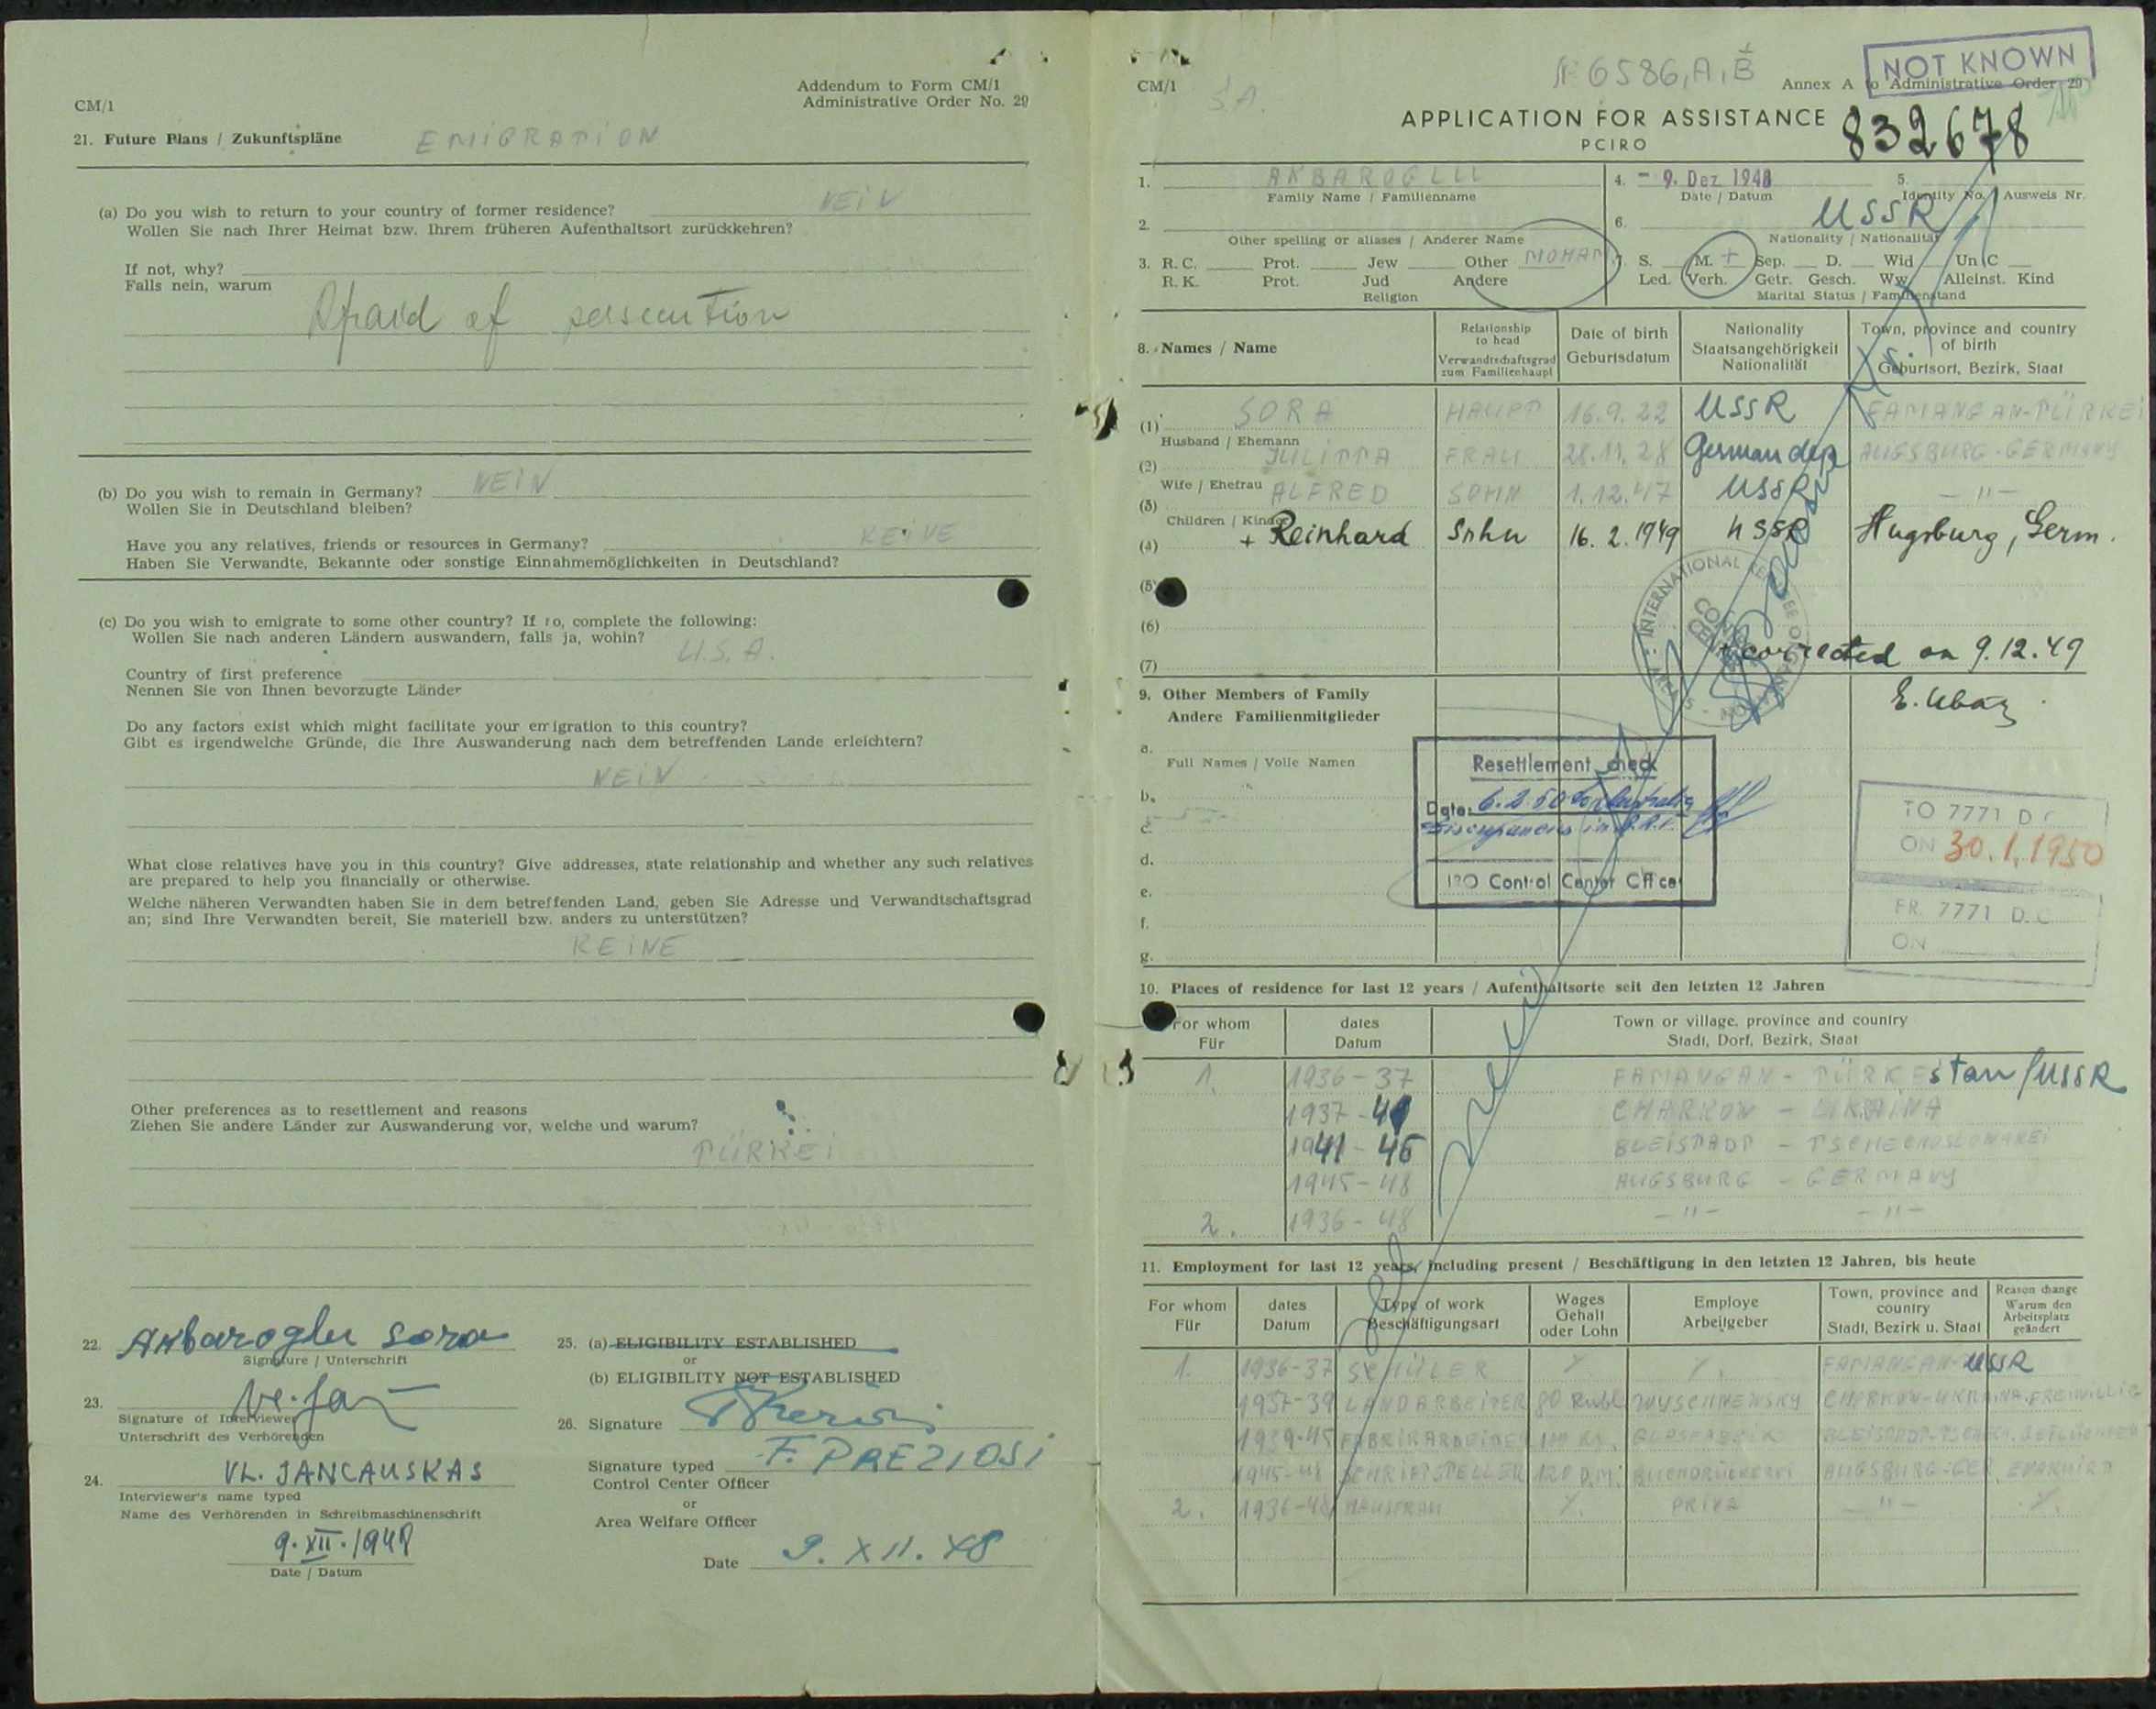 CM/1
Addendum to Form CM/1
Administrative Order No. 29
21. Future Plans / Zukunftspläne EMIGRATION
(a) Do you wish to return to your country of former residence? NEIN
Wollen Sie nach Ihrer Heimat bzw. Ihrem früheren Aufenthaltsort zurückkehren?
If not, why?
Falls nein, warum
Afraid of persecution
(b) Do you wish to remain in Germany? NEIN
Wollen Sie in Deutschland bleiben?
Have you any relatives, friends or resources in Germany? KEINE
Haben Sie Verwandte, Bekannte oder sonstige Einnahmemöglichkeiten in Deutschland?
(c) Do you wish to emigrate to some other country? If so, complete the following:
Wollen Sie nach anderen Ländern auswandern, falls ja, wohin?
U.S.A.
Country of first preference
Nennen Sie von Ihnen bevorzugte Länder
Do any factors exist which might facilitate your emigration to this country?
Gibt es irgendwelche Gründe, die Ihre Auswanderung nach dem betreffenden Lande erleichtern?
NEIN
What close relatives have you in this country? Give addresses, state relationship and whether any such relatives
are prepared to help you financially or otherwise.
Welche näheren Verwandten haben Sie in dem betreffenden Land, geben Sie Adresse und Verwandtschaftsgrad
an; sind Ihre Verwandten bereit, Sie materiell bzw. anders zu unterstützen?
KEINE
Other preferences as to resettlement and reasons
Ziehen Sie andere Länder zur Auswanderung vor, welche und warum?
TÜRKEI
22. Akbaroglu Sora
Signature / Unterschrift
23.
Signature of Interviewer
Unterschrift des Verhörenden
24. VL. JANCAUSKAS
Interviewer's name typed
Name des Verhörenden in Schreibmaschinenschrift
9.XII.1948
Date / Datum
25. (a) ELIGIBILITY ESTABLISHED
or
(b) ELIGIBILITY NOT ESTABLISHED
26. Signature
Signature typed F. PREZIOSI
Control Center Officer
or
Area Welfare Officer
Date 9. XII. 48
CM/1
S.A.
6586,A,B
Annex A to Administrative Order 29
NOT KNOWN
APPLICATION FOR ASSISTANCE
PCIRO
832678
1. AKBAROGLU
Family Name / Familienname
4. - 9. Dez. 1948
Date / Datum
5.
Identity No. / Ausweis Nr.
2.
Other spelling or aliases / Anderer Name
6. USSR
Nationality / Nationalität
3. R. C. Prot. Jew Other MOHAM
R. K. Prot. Jud Andere
Religion
7. S. M. + Sep. D. Wid Un C
Led. Verh. Getr. Gesch. Ww. Alleinst. Kind
Marital Status / Familienstand
8. Names / Name
Relationship to head
Verwandtschaftsgrad zum Familienhaupt
Date of birth
Geburtsdatum
Nationality
Staatsangehörigkeit
Nationalität
Town, province and country of birth
Geburtsort, Bezirk, Staat
(1) SORA HAUPT 16.9.22 USSR FAMANGAN-TÜRKEI
Husband / Ehemann
(2) JULITTA FRAU 28.11.28 German AUGSBURG-GERMANY
Wife / Ehefrau
(3) ALFRED SOHN 1.12.47 USSR -"-
Children / Kinder
(4) + Reinhard Sohn 16.2.1949 USSR Augsburg, Germ.
(5)
(6)
(7)
+ corrected on 9.12.49
9. Other Members of Family
Andere Familienmitglieder
a.
Full Names / Volle Namen
b.
c.
d.
e.
f.
g.
Resettlement check
Date: 6.2.50 for Australia
IRO Control Center Officer
TO 7771 D.C
ON 30.1.1950
FR. 7771 D.C
ON
10. Places of residence for last 12 years / Aufenthaltsorte seit den letzten 12 Jahren
For whom
Für
dates
Datum
Town or village, province and country
Stadt, Dorf, Bezirk, Staat
1. 1936-37 FAMANGAN - TÜRKEstan/USSR
1937-41 CHARKOW - UKRAINA
1941-45 BLEISTADT - TSCHECHOSLOWAKEI
1945-48 AUGSBURG - GERMANY
2. 1936-48 -"- -"-
11. Employment for last 12 years, including present / Beschäftigung in den letzten 12 Jahren, bis heute
For whom
Für
dates
Datum
Type of work
Beschäftigungsart
Wages
Gehalt
oder Lohn
Employe
Arbeitgeber
Town, province and country
Stadt, Bezirk u. Staat
Reason change
Warum den
Arbeitsplatz
geändert
1. 1936-37 SCHÜLER FAMANGAN-USSR
1937-39 LANDARBEITER 80 Rubl CHARKOW-UKRAINA FREIWILLIG
1939-45 FABRIKARBEITER
1945-48 SCHRIFTSTELLER 120 D.M. BUCHDRUCKEREI AUGSBURG-GER
2. 1936-48 HAUSFRAU -"-